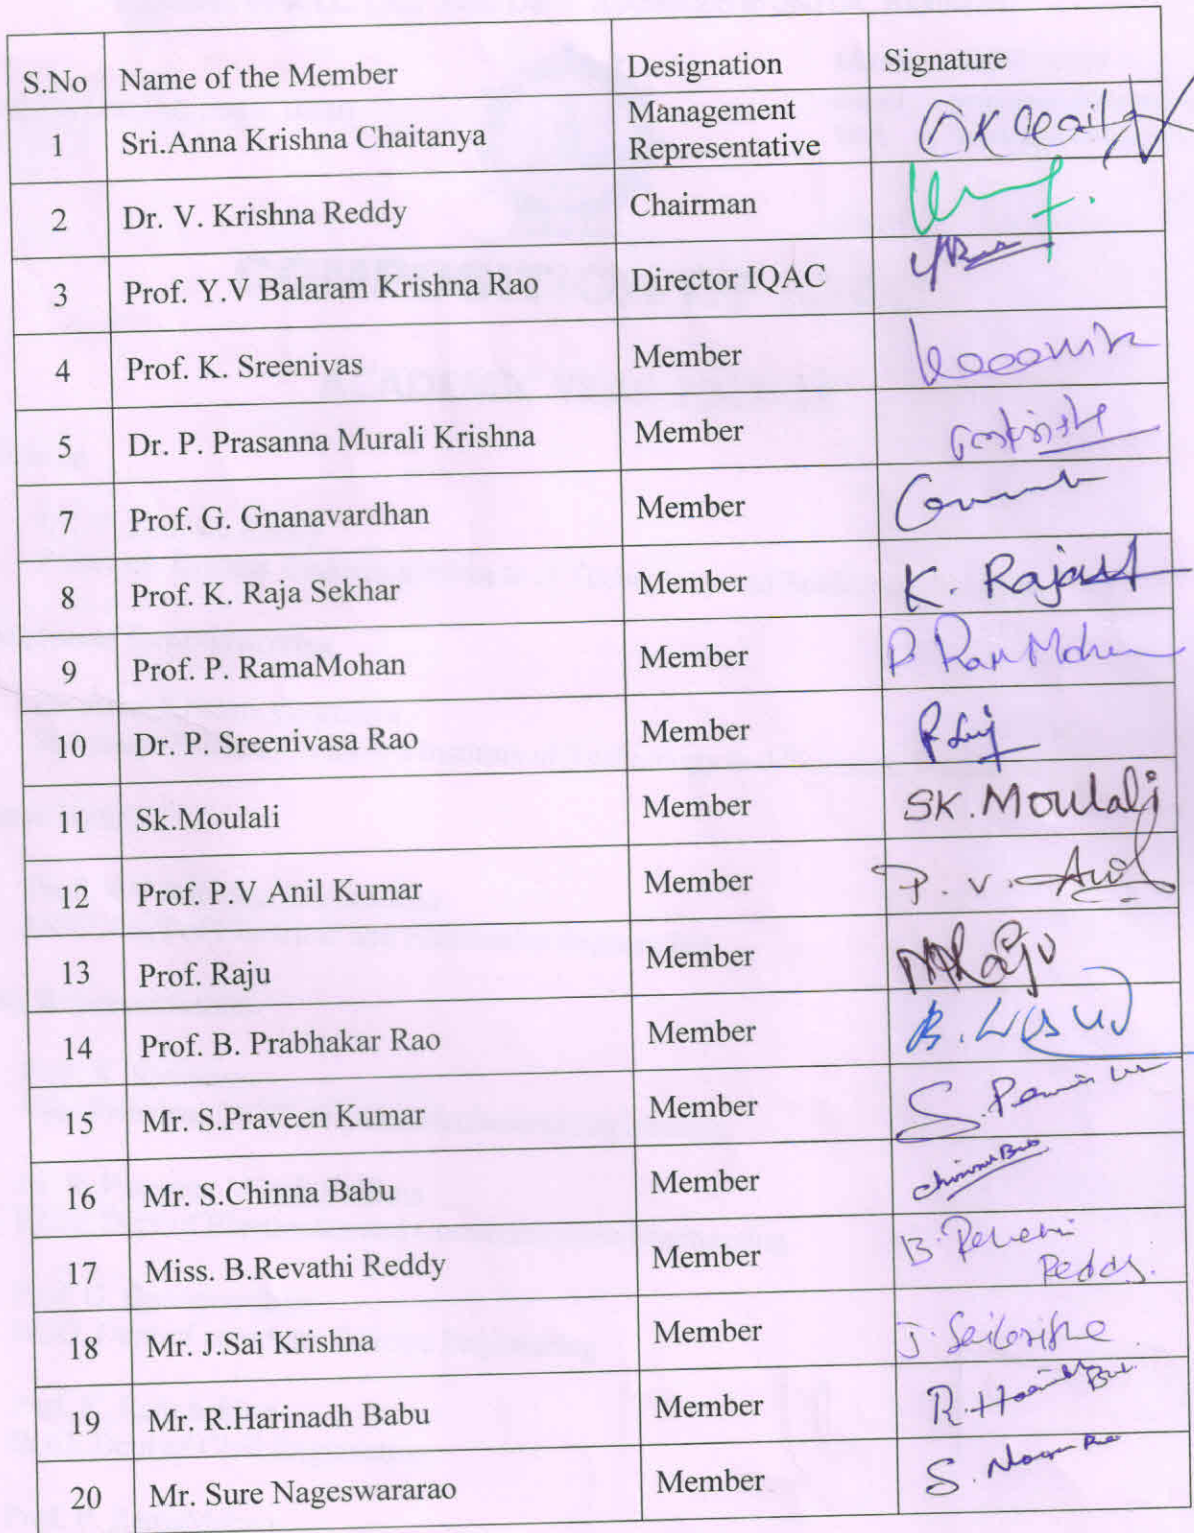 S.No Name of the Member Designation Signature
1 Sri.Anna Krishna Chaitanya Management Representative
2 Dr. V. Krishna Reddy Chairman
3 Prof. Y.V Balaram Krishna Rao Director IQAC
4 Prof. K. Sreenivas Member
5 Dr. P. Prasanna Murali Krishna Member
7 Prof. G. Gnanavardhan Member
8 Prof. K. Raja Sekhar Member K. Raja
9 Prof. P. RamaMohan Member P Ram Mohan
10 Dr. P. Sreenivasa Rao Member
11 Sk.Moulali Member SK.Moulali
12 Prof. P.V Anil Kumar Member P. V. Anil
13 Prof. Raju Member Raju
14 Prof. B. Prabhakar Rao Member B.
15 Mr. S.Praveen Kumar Member S.
16 Mr. S.Chinna Babu Member
17 Miss. B.Revathi Reddy Member B. Revathi
Reddy.
18 Mr. J.Sai Krishna Member J.
19 Mr. R.Harinadh Babu Member R.
20 Mr. Sure Nageswararao Member S.